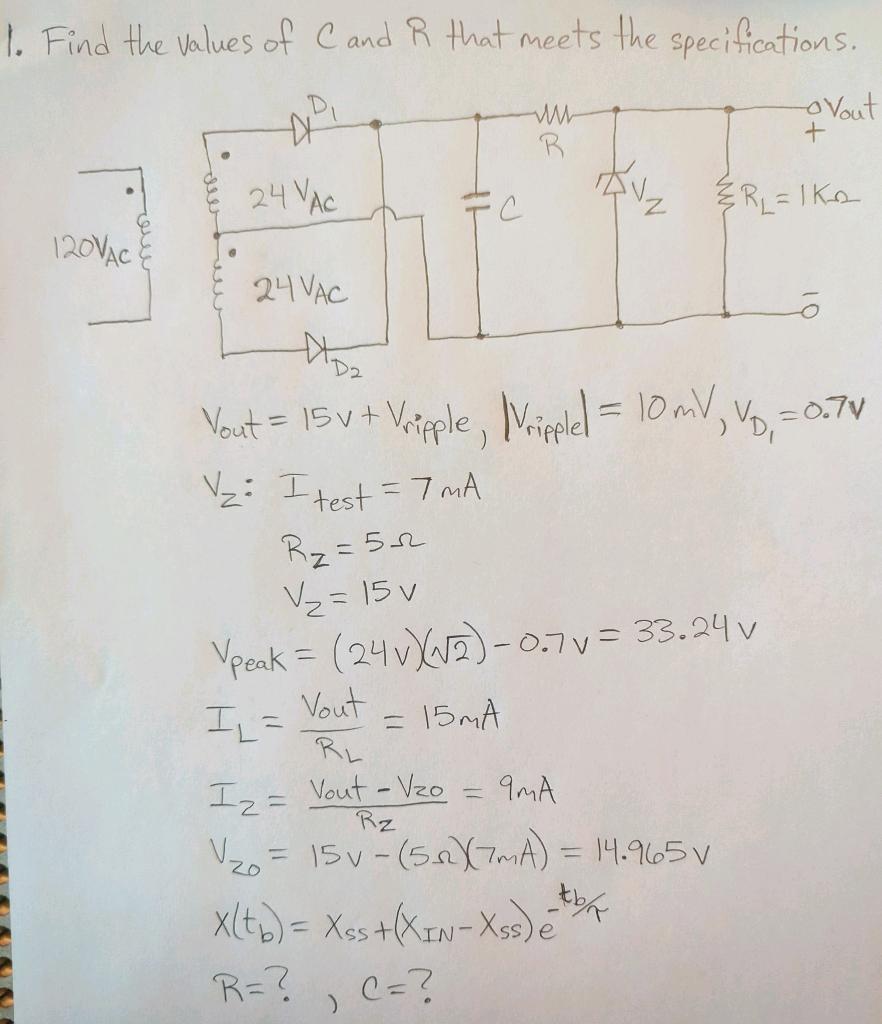 1. Find the values of C and R that meets the specifications.
D1
Vout
+
R
24 VAC
C
VZ
RL = 1KΩ
120VAC
24 VAC
-
D2
Vout = 15v + Vripple, |Vripple| = 10mV, VD1 = 0.7V
VZ: Itest = 7mA
RZ = 5Ω
VZ = 15 v
Vpeak = (24v)(√2) - 0.7v = 33.24 v
IL = Vout/RL = 15mA
IZ = Vout - VZO/RZ = 9mA
VZO = 15v - (5Ω)(7mA) = 14.965 v
X(tb) = XSS + (XIN - XSS) e^-tb/τ
R = ? , C = ?